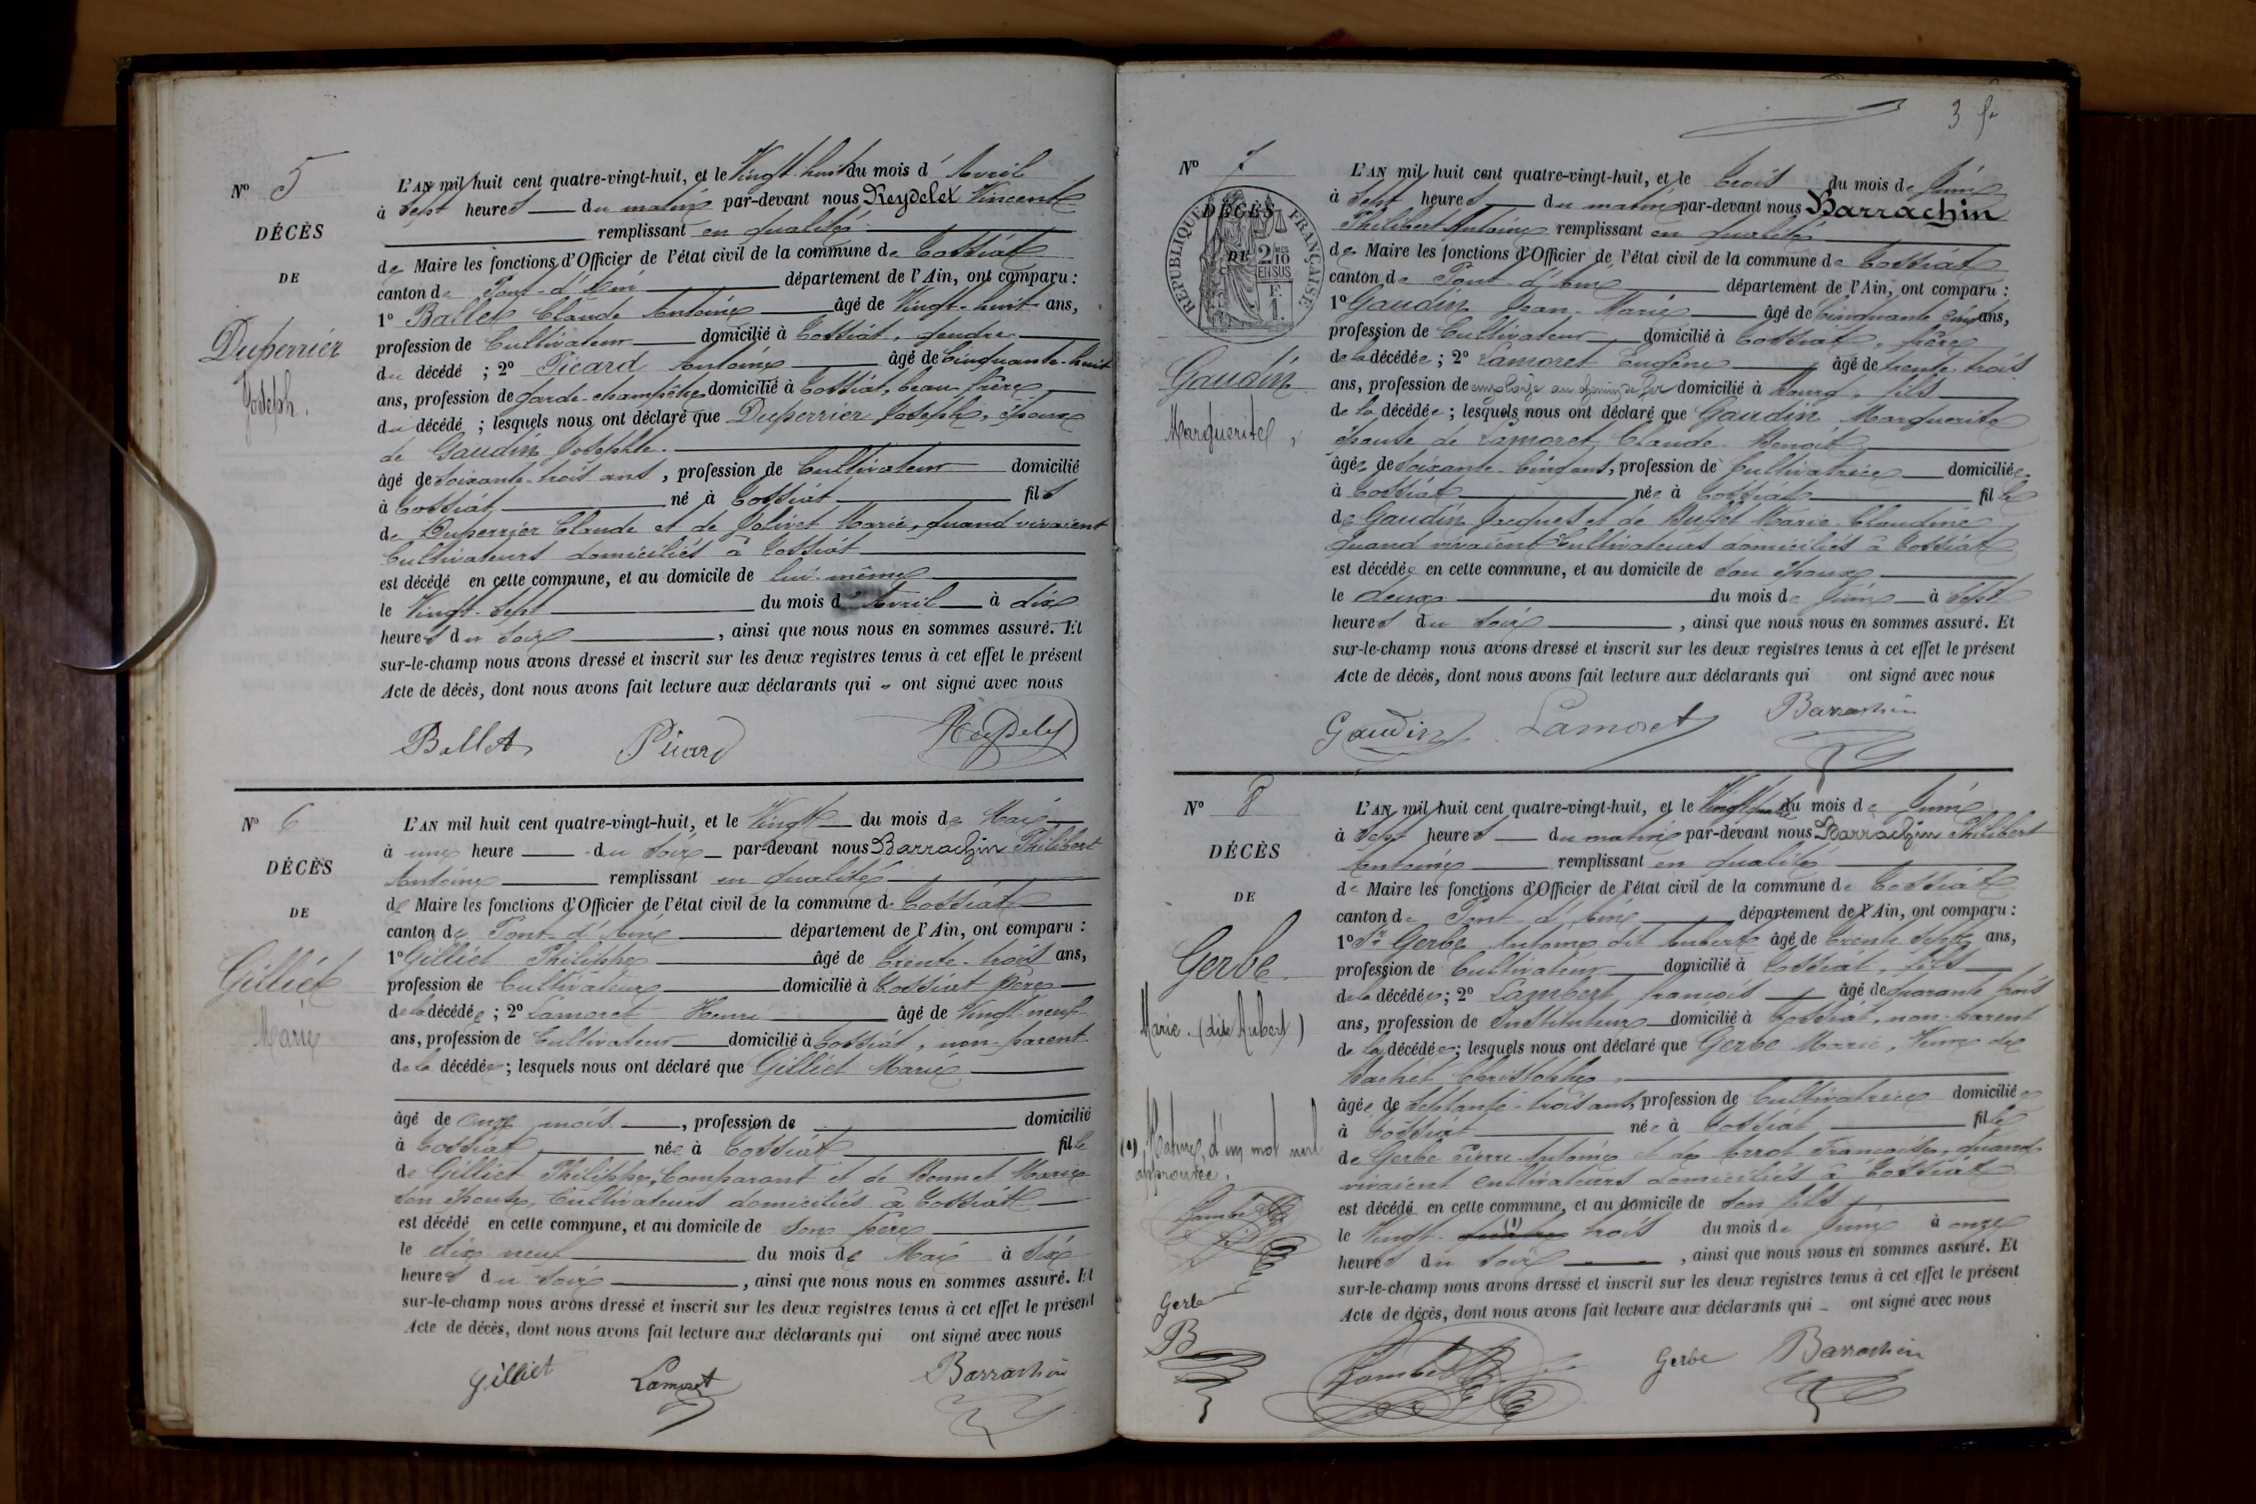 N° 5
DÉCÈS
DE
Duperrier
Joseph.
L'AN mil huit cent quatre-vingt-huit, et le Vingt huit du mois d'Avril
à sept heures du matin par-devant nous Reydelet Vincent
remplissant en qualité
de Maire les fonctions d'Officier de l'état civil de la commune de Tossiat
canton de Pont-d'Ain département de l'Ain, ont comparu :
1° Ballet Claude Antoine âgé de Vingt-huit ans,
profession de Cultivateur domicilié à Tossiat, gendre
du décédé ; 2° Picard Antoine âgé de Cinquante-huit
ans, profession de garde-champêtre domicilié à Tossiat, beau-frère
du décédé ; lesquels nous ont déclaré que Duperrier Joseph, époux
de Gaudin Josephte.
âgé de soixante-trois ans, profession de Cultivateur domicilié
à Tossiat né à Tossiat fils
de Duperrier Claude et de Jolivet Marie, quand vivaient
Cultivateurs domiciliés à Tossiat
est décédé en cette commune, et au domicile de lui-même
le Vingt-sept du mois d'Avril à dix
heures du soir, ainsi que nous nous en sommes assuré. Et
sur-le-champ nous avons dressé et inscrit sur les deux registres tenus à cet effet le présent
Acte de décès, dont nous avons fait lecture aux déclarants qui ont signé avec nous
Ballet Picard Reydelet
N° 6
DÉCÈS
DE
Gilliet
Marie
L'AN mil huit cent quatre-vingt-huit, et le Vingt du mois de Mai
à une heure du soir par-devant nous Barrachin Philibert
Antoine remplissant en qualité
de Maire les fonctions d'Officier de l'état civil de la commune de Tossiat
canton de Pont-d'Ain département de l'Ain, ont comparu :
1° Gilliet Philippe âgé de trente-trois ans,
profession de Cultivateur domicilié à Tossiat père
de la décédée ; 2° Lamoret Henri âgé de Vingt-neuf
ans, profession de Cultivateur domicilié à Tossiat, non-parent
de la décédée ; lesquels nous ont déclaré que Gilliet Marie
âgé de onze mois, profession de domicilié
à Tossiat née à Tossiat fille
de Gilliet Philippe, Comparant et de Bonnet Marie
son épouse, Cultivateurs domiciliés à Tossiat
est décédé en cette commune, et au domicile de son père
le dix neuf du mois de Mai à six
heures du soir, ainsi que nous nous en sommes assuré. Et
sur-le-champ nous avons dressé et inscrit sur les deux registres tenus à cet effet le présent
Acte de décès, dont nous avons fait lecture aux déclarants qui ont signé avec nous
Gilliet Lamoret Barrachin
3 f.
N° 7
DÉCÈS
DE
RÉPUBLIQUE FRANÇAISE
2/10 EN SUS
F. 1.
Gaudin
Marguerite,
L'AN mil huit cent quatre-vingt-huit, et le trois du mois de Juin
à sept heures du matin par-devant nous Barrachin
Philibert Antoine remplissant en qualité
de Maire les fonctions d'Officier de l'état civil de la commune de Tossiat
canton de Pont-d'Ain département de l'Ain, ont comparu :
1° Gaudin Jean-Marie âgé de Cinquante cinq ans,
profession de Cultivateur domicilié à Tossiat, frère
de la décédée ; 2° Lamoret Eugène âgé de trente-trois
ans, profession de employé au chemin de fer domicilié à Bourg, fils
de la décédée ; lesquels nous ont déclaré que Gaudin Marguerite
épouse de Lamoret Claude-Benoit
âgée de soixante-cinq ans, profession de Cultivatrice domiciliée
à Tossiat née à Tossiat fille
de Gaudin Jacques et de Buffet Marie-Claudine
quand vivaient Cultivateurs domiciliés à Tossiat
est décédée en cette commune, et au domicile de son époux
le deux du mois de Juin à sept
heures du soir, ainsi que nous nous en sommes assuré. Et
sur-le-champ nous avons dressé et inscrit sur les deux registres tenus à cet effet le présent
Acte de décès, dont nous avons fait lecture aux déclarants qui ont signé avec nous
Gaudin Lamoret Barrachin
N° 8
DÉCÈS
DE
Gerbe
Marie (dite Aubert)
(1) Rature d'un mot nul
approuvée.
Lambert
Gerbe
B
L'AN mil huit cent quatre-vingt-huit, et le Vingt quatre du mois de Juin
à sept heures du matin par-devant nous Barrachin Philibert
Antoine remplissant en qualité
de Maire les fonctions d'Officier de l'état civil de la commune de Tossiat
canton de Pont-d'Ain département de l'Ain, ont comparu :
1° Gerbe Antoine dit Aubert âgé de trente sept ans,
profession de Cultivateur domicilié à Tossiat, fils
de la décédée ; 2° Lambert François âgé de quarante trois
ans, profession de Instituteur domicilié à Tossiat, non-parent
de la décédée ; lesquels nous ont déclaré que Gerbe Marie, Veuve de
Christophe
âgée de septante-trois ans, profession de Cultivatrice domiciliée
à Tossiat née à Tossiat fille
de Gerbe Pierre Antoine et de Françoise, quand
vivaient Cultivateurs domiciliés à Tossiat
est décédé en cette commune, et au domicile de son fils
le Vingt (1) trois du mois de Juin à onze
heures du soir, ainsi que nous nous en sommes assuré. Et
sur-le-champ nous avons dressé et inscrit sur les deux registres tenus à cet effet le présent
Acte de décès, dont nous avons fait lecture aux déclarants qui ont signé avec nous
Lambert Gerbe Barrachin